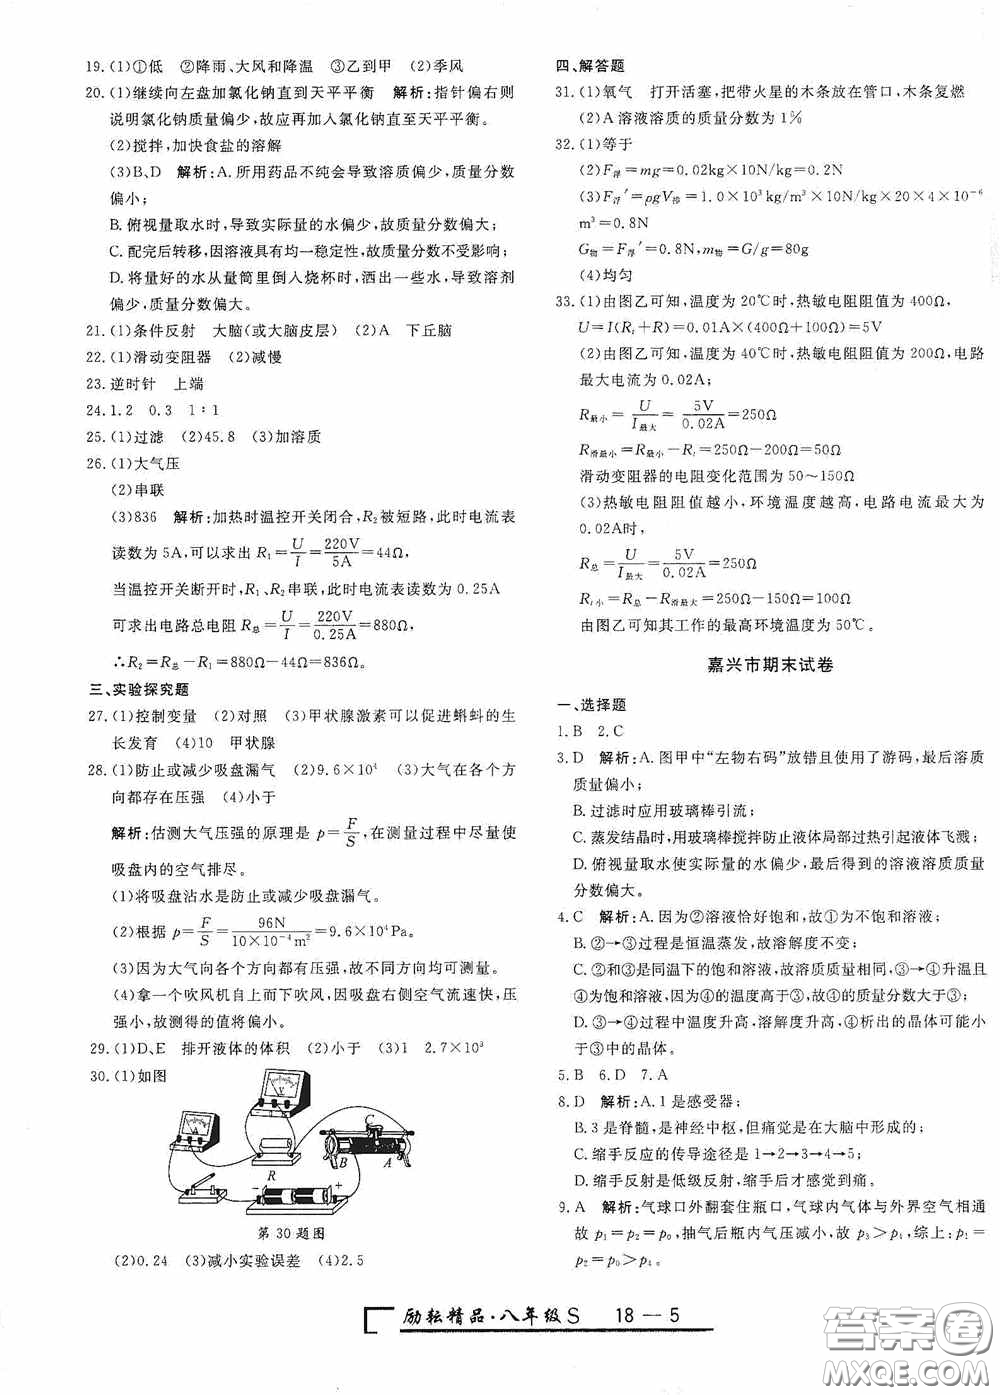 19.(1)①低　②降雨、大风和降温　③乙到甲　(2)季风
20.(1)继续向左盘加氯化钠直到天平平衡　解析:指针偏右则
说明氯化钠质量偏少,故应再加入氯化钠直至天平平衡。
(2)搅拌,加快食盐的溶解
(3)B、D　解析:A.所用药品不纯会导致溶质质量分数
偏小;
B.俯视量取水时,导致实际量的水偏少,故质量分数偏大;
C.配完后转移,因溶液具有均一稳定性,故质量分数不受影响;
D.将量好的水从量筒里倒入烧杯时,洒出一些水,导致溶剂
偏少,质量分数偏大。
21.(1)条件反射　大脑(或大脑皮层)　(2)A　下丘脑
22.(1)滑动变阻器　(2)减慢
23.逆时针　上端
24.1.2　0.3　1∶1
25.(1)过滤　(2)45.8　(3)加溶质
26.(1)大气压
(2)串联
(3)836　解析:加热时温控开关闭合,R₂被短路,此时电流表
读数为5A,可以求出R₁=U/I=220V/5A=44Ω,
当温控开关断开时,R₁、R₂串联,此时电流表读数为0.25A
可求出电路总电阻R总=U/I=220V/0.25A=880Ω,
∴R₂=R总−R₁=880Ω−44Ω=836Ω。
三、实验探究题
27.(1)控制变量　(2)对照　(3)甲状腺激素可以促进蝌蚪的生
长发育　(4)10　甲状腺
28.(1)防止或减少吸盘漏气　(2)9.6×10⁴　(3)大气在各个方
向都存在压强　(4)小于
解析:估测大气压强的原理是p=F/S,在测量过程中尽量使
吸盘内的空气排尽。
(1)将吸盘沾水是防止或减少吸盘漏气。
(2)根据p=F/S=96N/10×10⁻⁴m²=9.6×10⁴Pa。
(3)因为大气向各个方向都有压强,故不同方向均可测量。
(4)拿一个吹风机自上而下吹风,因吸盘右侧空气流速快,压
强小,故测得的值将偏小。
29.(1)D、E　排开液体的体积　(2)小于　(3)1　2.7×10³
30.(1)如图
V
A
C
B
A
R
−
+
第30题图
(2)0.24　(3)减小实验误差　(4)2.5
四、解答题
31.(1)氧气　打开活塞,把带火星的木条放在管口,木条复燃
(2)A溶液溶质的质量分数为1%
32.(1)等于
(2)F浮=mg=0.02kg×10N/kg=0.2N
(3)F浮′=ρgV排=1.0×10³kg/m³×10N/kg×20×4×10⁻⁶
m³=0.8N
G物=F浮′=0.8N,m物=G/g=80g
(4)均匀
33.(1)由图乙可知,温度为20℃时,热敏电阻阻值为400Ω,
U=I(Rt+R)=0.01A×(400Ω+100Ω)=5V
(2)由图乙可知,温度为40℃时,热敏电阻阻值为200Ω,电路
最大电流为0.02A;
R最小=U/I最大=5V/0.02A=250Ω
R滑最小=R最小−Rt=250Ω−200Ω=50Ω
滑动变阻器的电阻变化范围为50~150Ω
(3)热敏电阻阻值越小,环境温度越高,电路电流最大为
0.02A时,
R总=U/I最大=5V/0.02A=250Ω
Rt小=R总−R滑最大=250Ω−150Ω=100Ω
由图乙可知其工作的最高环境温度为50℃。
嘉兴市期末试卷
一、选择题
1.B　2.C
3.D　解析:A.图甲中“左物右码”放错且使用了游码,最后溶质
质量偏小;
B.过滤时应用玻璃棒引流;
C.蒸发结晶时,用玻璃棒搅拌防止液体局部过热引起液体飞溅;
D.俯视量取水使实际量的水偏少,最后得到的溶液溶质质量
分数偏大。
4.C　解析:A.因为②溶液恰好饱和,故①为不饱和溶液;
B.②→③过程是恒温蒸发,故溶解度不变;
C.②和③是同温下的饱和溶液,故溶质质量相同,③→④升温且
④为饱和溶液,因为④的温度高于③,故④的质量分数大于③;
D.③→④过程中温度升高,溶解度升高,④析出的晶体可能小
于③中的晶体。
5.B　6.D　7.A
8.D　解析:A.1是感受器;
B.3是脊髓,是神经中枢,但痛觉是在大脑中形成的;
C.缩手反应的传导途径是1→2→3→4→5;
D.缩手反射是低级反射,缩手后才感觉到痛。
9.A　解析:气球口外翻套住瓶口,气球内气体与外界空气相通
故p₁=p₂=p₀,抽气后瓶内气压减小,故p₃>p₄,综上:p₁
=p₂=p₀>p₄。
励耘精品·八年级S　18—5
答案圈
MXQE.COM